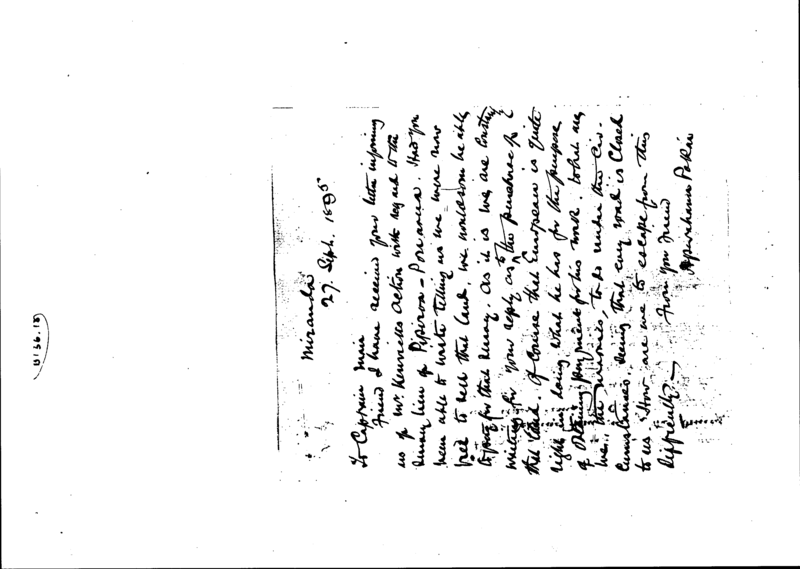 Miranda
27. Sept. 1895
To Captain Mair
Friend I have received your letter informing
us of Mr. action with regard to the
survey lien of Pipiroa - . Had you
been able to write telling us we were now
free to sell that land, we would soon be able
to pay for that survey. As it is we are
waiting for your reply as to the purchase of
that land. Of course that European is quite
right in doing what he has for the purpose
of obtaining payment for his work. What are
we, the , to do under the cir-
cumstances, seeing that every road is closed
to us. How are we to escape from this
difficulty —
From your friend